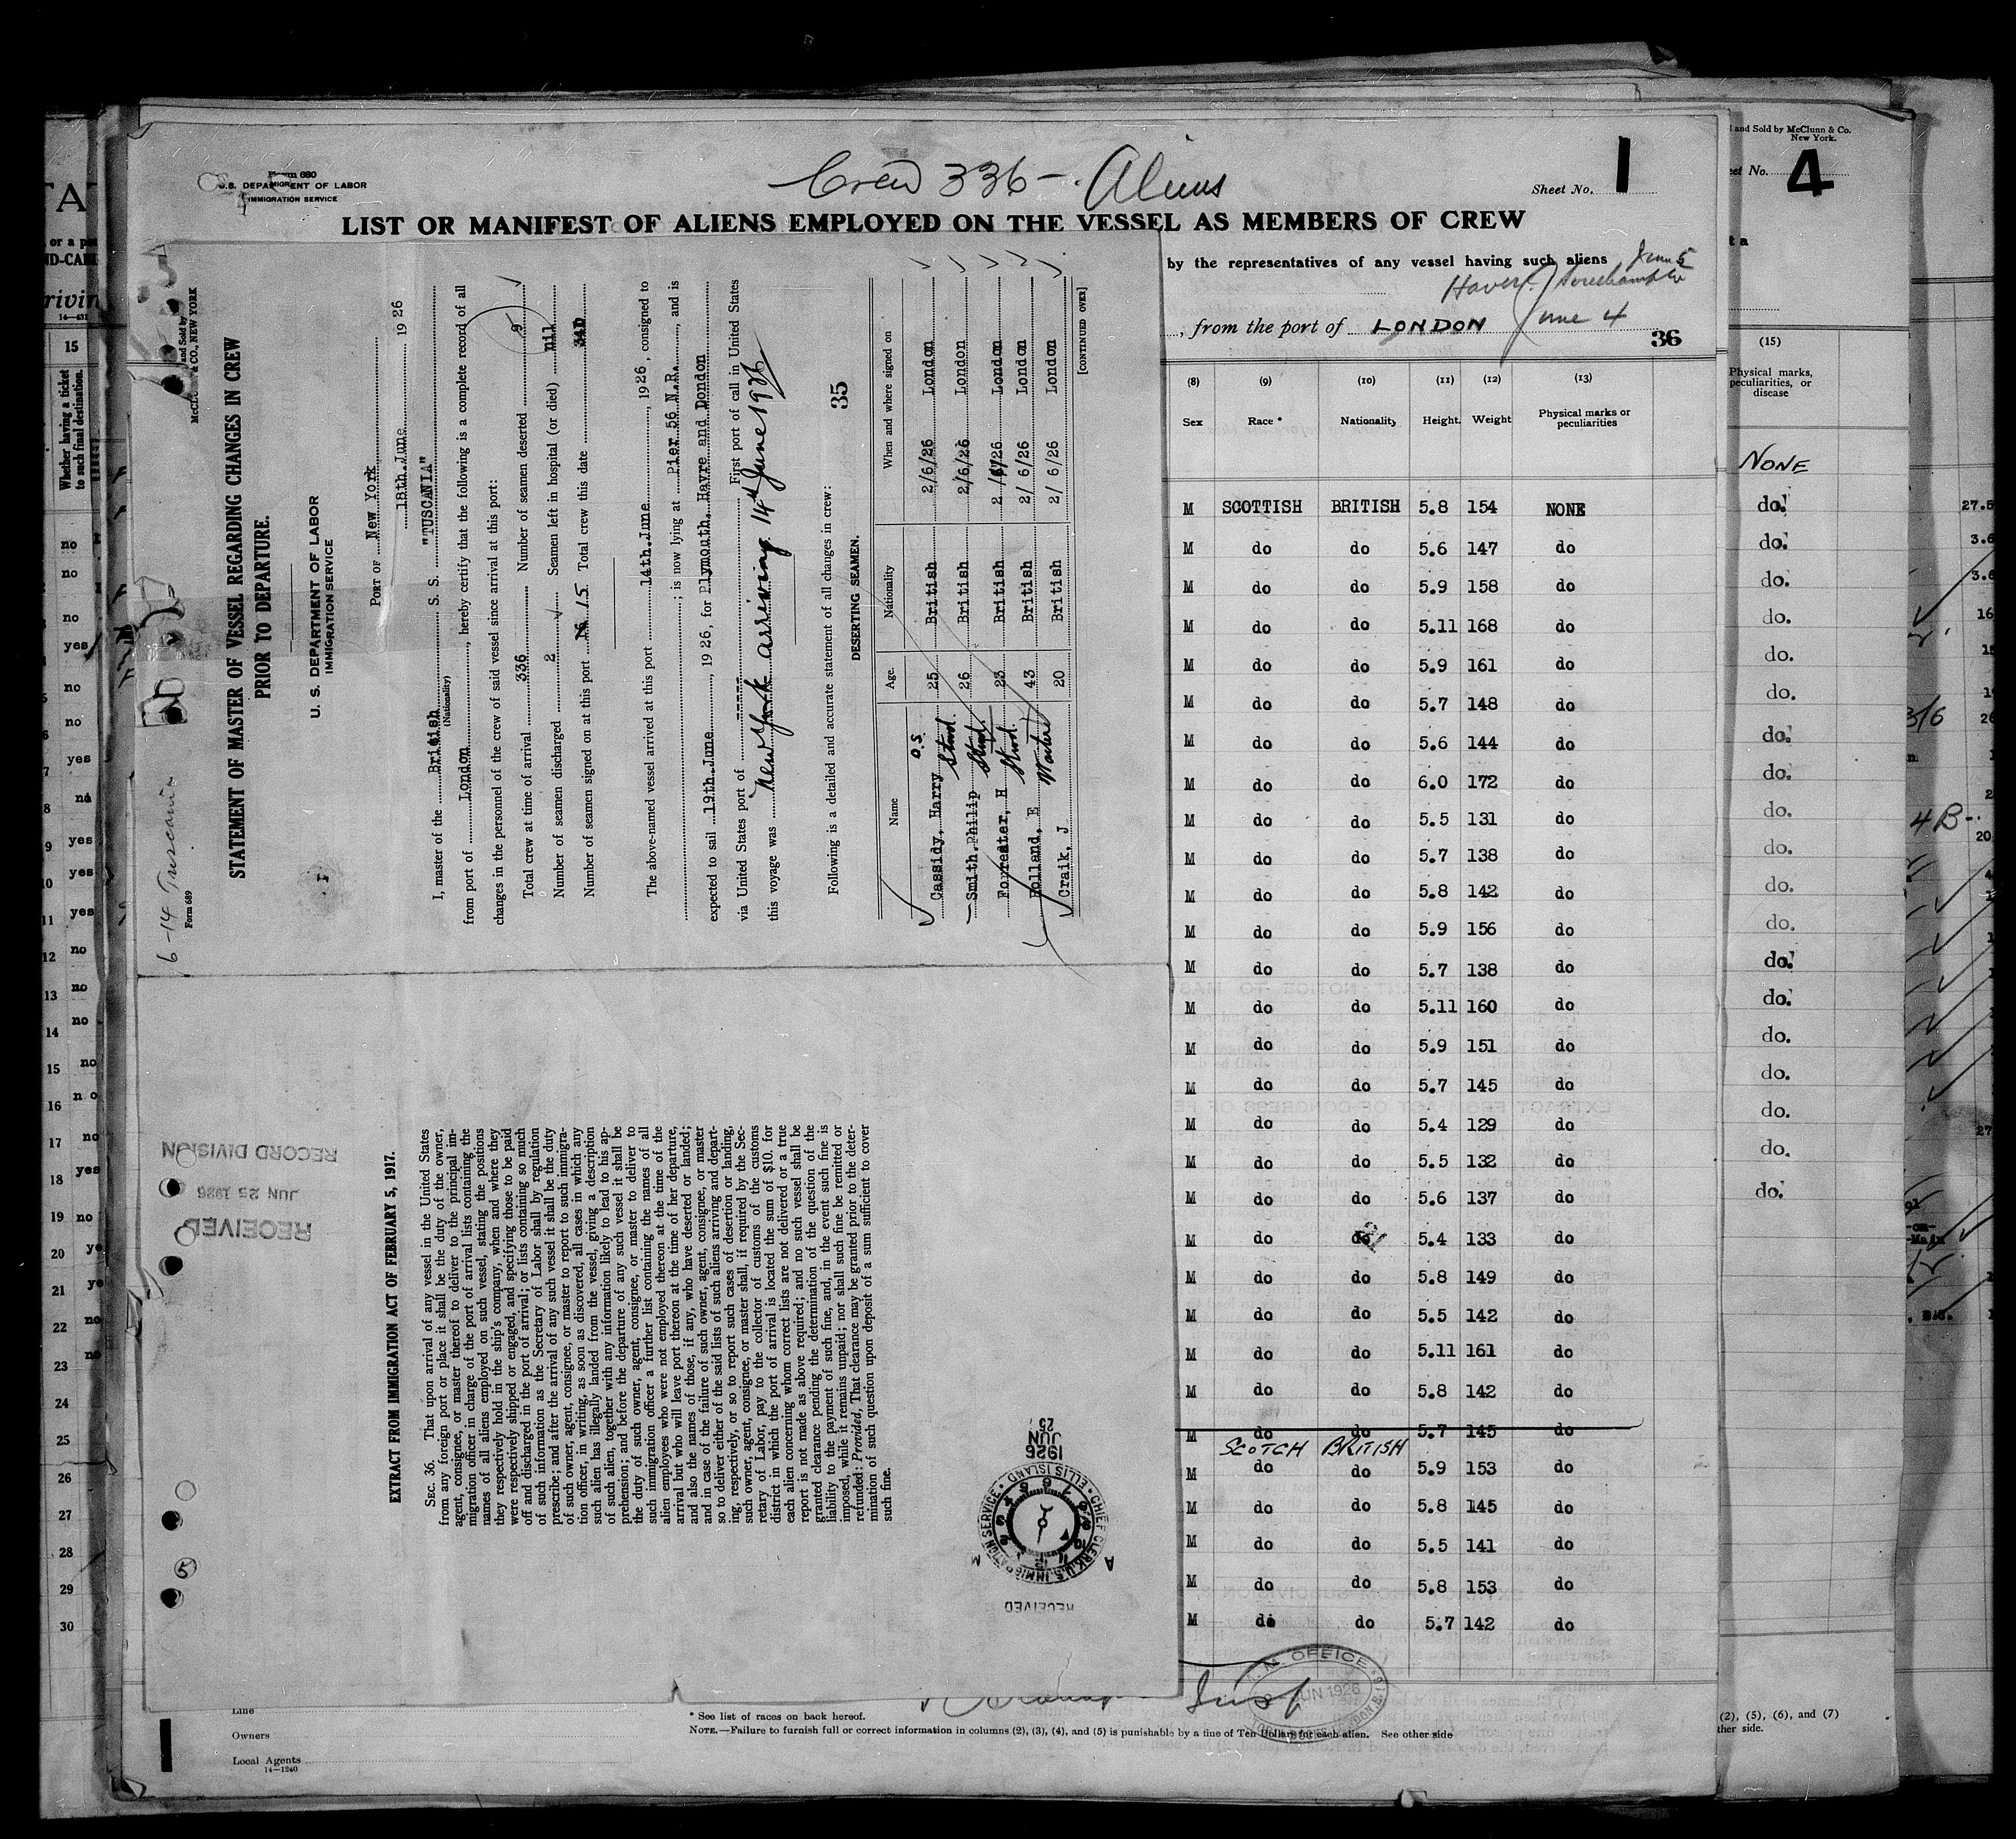 Crew 336 - Aliens
Form 680
U.S. DEPARTMENT OF LABOR
IMMIGRATION SERVICE
Sheet No. 1
LIST OR MANIFEST OF ALIENS EMPLOYED ON THE VESSEL AS MEMBERS OF CREW
by the representatives of any vessel having such aliens
June 5
June 4
, from the port of LONDON
36
(8) (9) (10) (11) (12) (13)
Sex Race * Nationality Height Weight Physical marks or peculiarities
M SCOTTISH BRITISH 5.8 154 NONE
M do do 5.6 147 do
M do do 5.9 158 do
M do do 5.11 168 do
M do do 5.9 161 do
M do do 5.7 148 do
M do do 5.6 144 do
M do do 6.0 172 do
M do do 5.5 131 do
M do do 5.7 138 do
M do do 5.8 142 do
M do do 5.9 156 do
M do do 5.7 138 do
M do do 5.11 160 do
M do do 5.9 151 do
M do do 5.7 145 do
M do do 5.4 129 do
M do do 5.5 132 do
M do do 5.6 137 do
M do do 5.4 133 do
M do do 5.8 149 do
M do do 5.5 142 do
M do do 5.11 161 do
M do do 5.8 142 do
M do do 5.7 145 do
SCOTCH BRITISH
M do do 5.9 153 do
M do do 5.8 145 do
M do do 5.5 141 do
M do do 5.8 153 do
M do do 5.7 142 do
Line
Owners
Local Agents
14—1240
* See list of races on back hereof.
NOTE.—Failure to furnish full or correct information in columns (2), (3), (4), and (5) is punishable by a fine of Ten Dollars for each alien. See other side
6-14 Tuscania
Form 689
and Sold by
McCLUNN & CO., NEW YORK
STATEMENT OF MASTER OF VESSEL REGARDING CHANGES IN CREW
PRIOR TO DEPARTURE.
U. S. DEPARTMENT OF LABOR
IMMIGRATION SERVICE
PORT OF New York
18th.June 1926
I, master of the British S. S. "TUSCANIA"
(Nationality)
from port of London, hereby certify that the following is a complete record of all
changes in the personnel of the crew of said vessel since arrival at this port:
Total crew at time of arrival 336 Number of seamen deserted 9
Number of seamen discharged 2 Seamen left in hospital (or died) nil
Number of seamen signed on at this port 15 Total crew this date 340
The above-named vessel arrived at this port 14th.June, 1926, consigned to
; is now lying at Pier 56 N.R., and is
expected to sail 19th.June, 1926, for Plymouth, Havre and London
via United States port of First port of call in United States
this voyage was New York arriving 14th June 1926
Following is a detailed and accurate statement of all changes in crew:
35
DESERTING SEAMEN.
Name Age. Nationality When and where signed on
Cassidy, Harry O.S 25 British 2/6/26 London
Smith.Philip Stwd. 26 British 2/6/26 London
Forrester, H Stwd. 23 British 2/6/26 London
Holland, E Stwd. 43 British 2/6/26 London
Craik, J Waiter 20 British 2/6/26 London
[CONTINUED OVER]
EXTRACT FROM IMMIGRATION ACT OF FEBRUARY 5, 1917.
SEC. 36. That upon arrival of any vessel in the United States
from any foreign port or place it shall be the duty of the owner,
agent, consignee, or master thereof to deliver to the principal im-
migration officer in charge of the port of arrival lists containing the
names of all aliens employed on such vessel, stating the positions
they respectively hold in the ship's company, when and where they
were respectively shipped or engaged, and specifying those to be paid
off and discharged in the port of arrival; or lists containing so much
of such information as the Secretary of Labor shall by regulation
prescribe; and after the arrival of any such vessel it shall be the duty
of such owner, agent, consignee, or master to report to such immigra-
tion officer, in writing, as soon as discovered, all cases in which any
such alien has illegally landed from the vessel, giving a description
of such alien, together with any information likely to lead to his ap-
prehension; and before the departure of any such vessel it shall be
the duty of such owner, agent, consignee, or master to deliver to
such immigration officer a further list containing the names of all
alien employees who were not employed thereon at the time of the
arrival but who will leave port thereon at the time of her departure,
and also the names of those, if any, who have deserted or landed;
and in case of the failure of such owner, agent, consignee, or master
so to deliver either of the said lists of such aliens arriving and depart-
ing, respectively, or so to report such cases of desertion or landing,
such owner, agent, consignee, or master shall, if required by the Sec-
retary of Labor, pay to the collector of customs of the customs
district in which the port of arrival is located the sum of $10. for
each alien concerning whom correct lists are not delivered or a true
report is not made as above required; and no such vessel shall be
granted clearance pending the determination of the question of the
liability to the payment of such fine, and, in the event such fine is
imposed, while it remains unpaid; nor shall such fine be remitted or
refunded: Provided, That clearance may be granted prior to the deter-
mination of such question upon deposit of a sum sufficient to cover
such fine.
RECEIVED
JUN 25 1926
RECORD DIVISION
RECEIVED
CHIEF CLERK, U.S. IMMIGRATION SERVICE • ELLIS ISLAND
1926 JUN 25
5
and Sold by McClunn & Co.
New York.
4
(15)
Physical marks,
peculiarities, or
disease
NONE
do.
do.
do.
do.
do.
do.
do.
do.
do.
do.
do.
do.
do.
do.
do.
do.
do.
do.
do.
(2), (5), (6), and (7)
ther side.
15
Whether having a ticket
to such final destination.